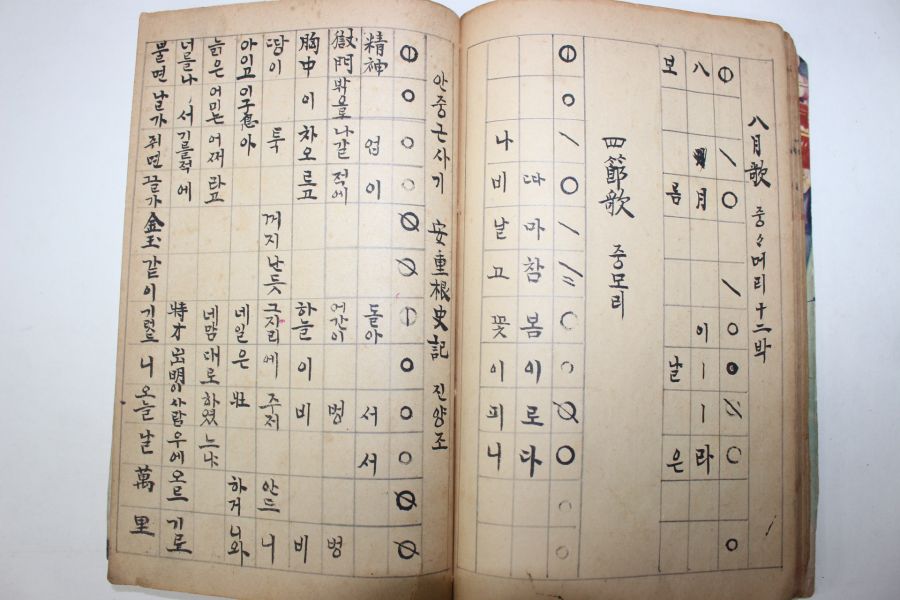 八月歌 중々머리 十二박
八月이ㅣㅣ라
보름날은
四節歌 중모리
따마참봄이로다
나비날고꽃이피니
안중근사기 安重根史記 진양조
精神 업이 돌아 서서
獄門 밖으로 나갈 적에 어간이 벙벙
胸中이 차오르고 하늘이 비비
땅이 툭 꺼지난듯 그자리에 주저 안드니
아이고 이子息아 네일은 壯하거니와
늙은 어미는 어찌라고 네맘대로 하였느냐
너를나 서 기를적에 特才 出明이 사람우에 오르기로
불면 날가 쥐면 끌가 金玉같이 기렀드니 오늘날 萬里